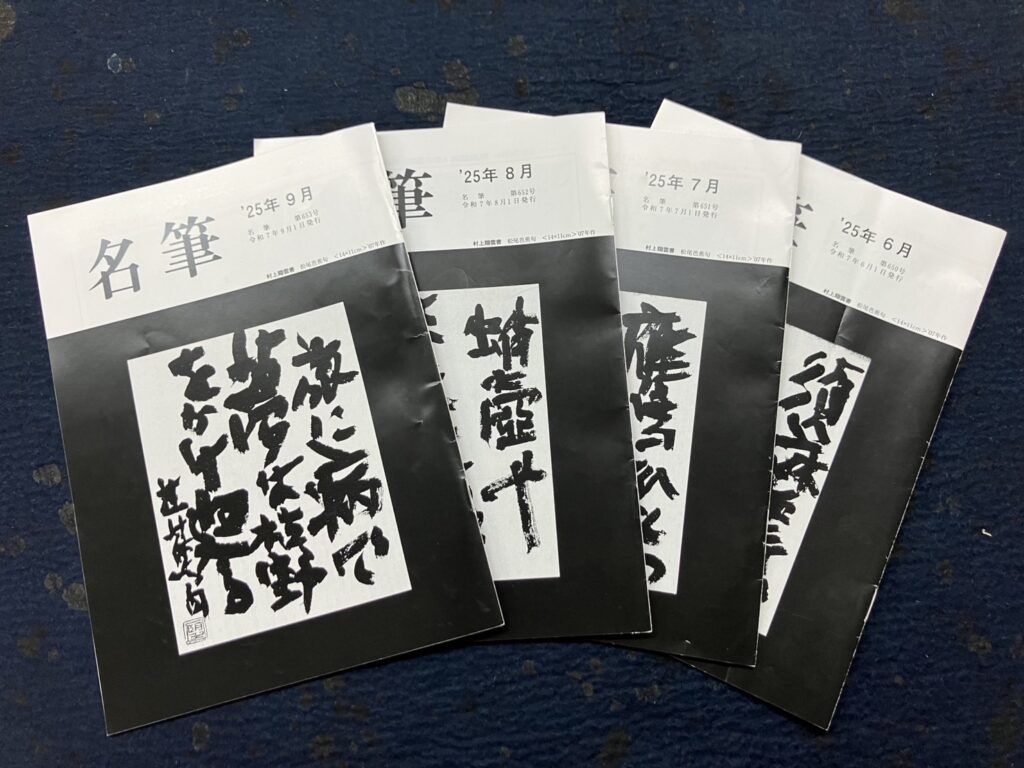 名筆
'25年 9月
名筆 第653号
令和7年9月1日発行
村上翔雲書 松尾芭蕉句 <14×11cm>'07年作
旅に病で
夢は枯野
をかけ廻る
芭蕉句
筆
'25年 8月
名筆 第652号
令和7年8月1日発行
村上翔雲書 松尾芭蕉句 <14×11cm>'07年作
蛸壺
'25年 7月
名筆 第651号
令和7年7月1日発行
村上翔雲書 松尾芭蕉句 <14×11cm>'07年作
'25年 6月
名筆 第650号
令和7年6月1日発行
村上翔雲書 松尾芭蕉句 <14×11cm>'07年作
須磨